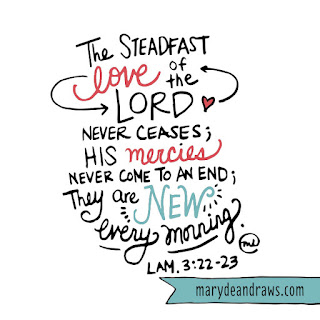 The STEADFAST
love of the
LORD
NEVER CEASES;
HIS mercies
NEVER COME TO AN END;
They are NEW
every morning.
me
LAM. 3:22-23
marydeandraws.com